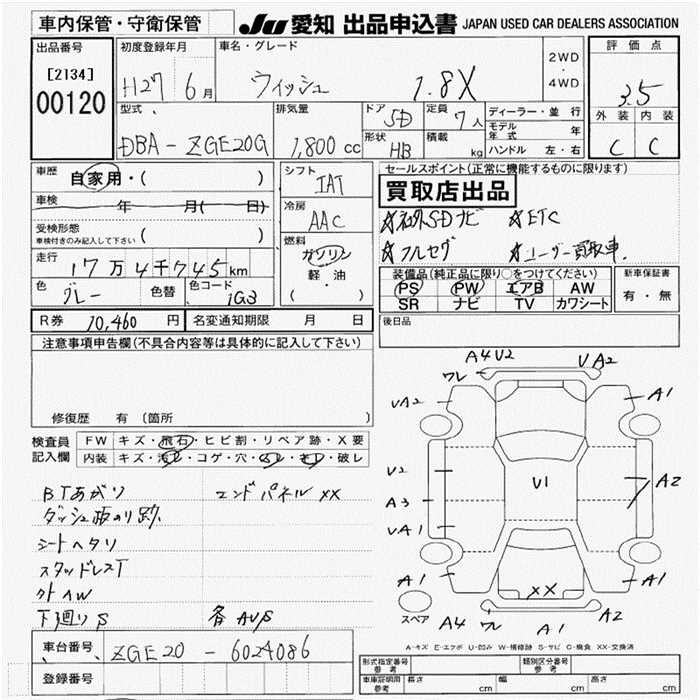 車内保管・守衛保管
JU 愛知 出品申込書 JAPAN USED CAR DEALERS ASSOCIATION
出品番号
[2134]
00120
初度登録年月
H27 6月
車名・グレード
ウィッシュ 1.8X
2WD
・
4WD
評価点
3.5
外装 内装
C C
型式
DBA-ZGE20G
排気量
1,800cc
ドア
5D
形状
HB
定員
7人
積載
kg
ディーラー・並行
モデル年式 年
ハンドル 左・右
車歴
自家用・( )
車検 年 月( 日)
受検形態
車検付きのみ記入して下さい ( )
走行
17万4千745km
色
グレー
色替
色コード
1G3
シフト
IAT
冷房
AAC
燃料
ガソリン
軽・油
( ・ )
セールスポイント(正常に機能するものに限ります)
買取店出品
☆社外SDナビ ☆ETC
☆フルセグ ☆ユーザー買取車
装備品(純正品に限り○をつけてください)
PS PW エアB AW
SR ナビ TV カワシート
新車保証書
有・無
R券 10,460円 名変通知期限 月 日
後日品
注意事項申告欄(不具合内容等は具体的に記入して下さい)
修復歴 有 (箇所 )
検査員記入欄
FW キズ・飛石・ヒビ割・リペア跡・X要
内装 キズ・汚れ・コゲ・穴・スレ・キレ・破レ
BTあがり エンドパネルXX
ダッシュ板のり跡
シートヘタリ
スタッドレスT
外AW
下廻りS 各AUS
A4U2
ワレ
UA2
UA2
A1
U2
U1
A2
A3
UA1
A1
XX
A1
スペア
A4
ワレ
A1
A2
A-キズ E-エクボ U-凹み W-補修跡 S-サビ C-腐食 XX-交換済
車台番号 ZGE20-6024086
登録番号
形式指定番号 参考
類別区分番号 参考
車庫証明用 参考 長さ cm 幅 cm 高さ cm